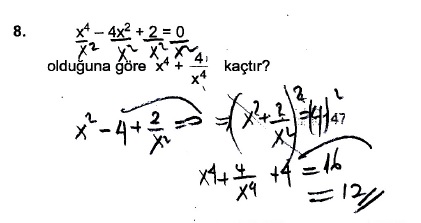 8. x⁴ - 4x² + 2 = 0
x² x² x² x²
olduğuna göre x⁴ + 4/x⁴ kaçtır?
x² - 4 + 2/x² = 0 = (x² + 2/x²)² = (4)² 47
x⁴ + 4/x⁴ + 4 = 16
= 12